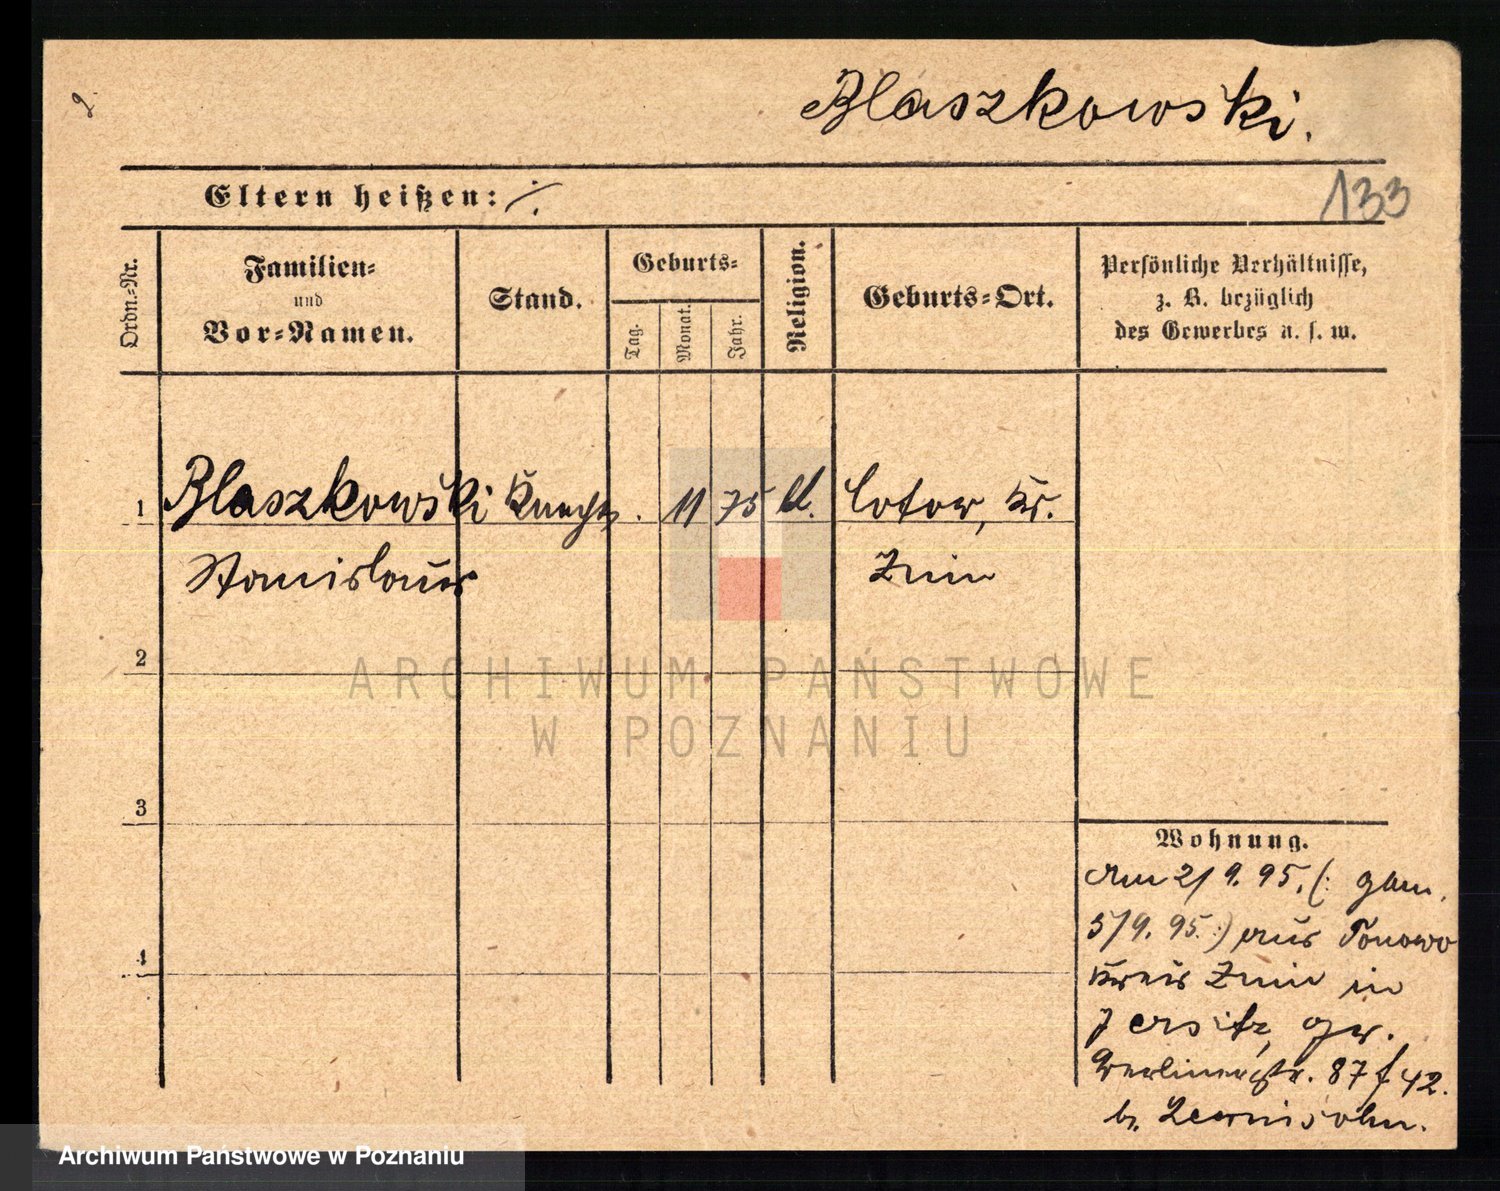 g.
Blaszkowski.
Eltern heißen: ∕.
133
Ordn.-Nr.
Familien-
und
Vor-Namen.
Stand.
Geburts-
Tag.
Monat.
Jahr.
Religion.
Geburts-Ort.
Persönliche Verhältnisse,
z. B. bezüglich
des Gewerbes u. s. w.
1 Blaszkowski Knecht . 11 75 kl. Kr.
Stanislaus Znin
2
ARCHIWUM PAŃSTWOWE
W POZNANIU
3
4
Wohnung.
Am 2/9. 95. (: gem.
5/9. 95. :) aus Tonowo
Kreis Znin in
Jersitz,
Berlinerstr. 87 f 42.
b.
Archiwum Państwowe w Poznaniu